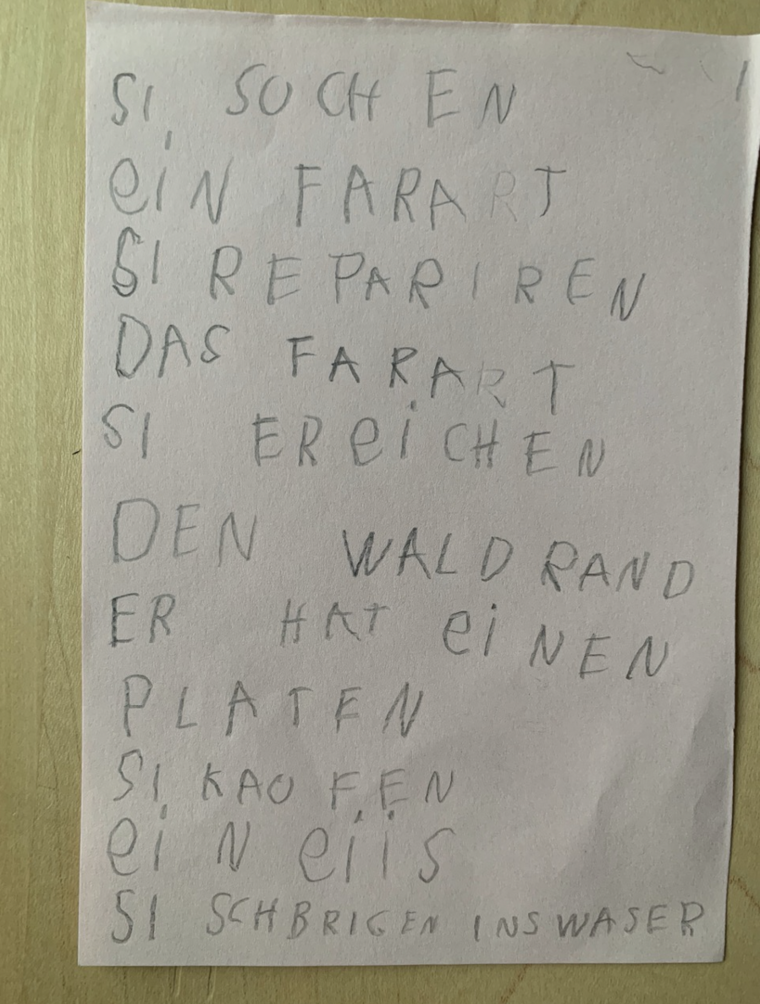 SI SUCHEN
eiN FARART
SI REPARIREN
DAS FARART
SI EReiCHEN
DEN WALDRAND
ER HAT eiNEN
PLATEN
SI KAOFEN
eiN eiis
SI SCHBRIGEN INS WASER